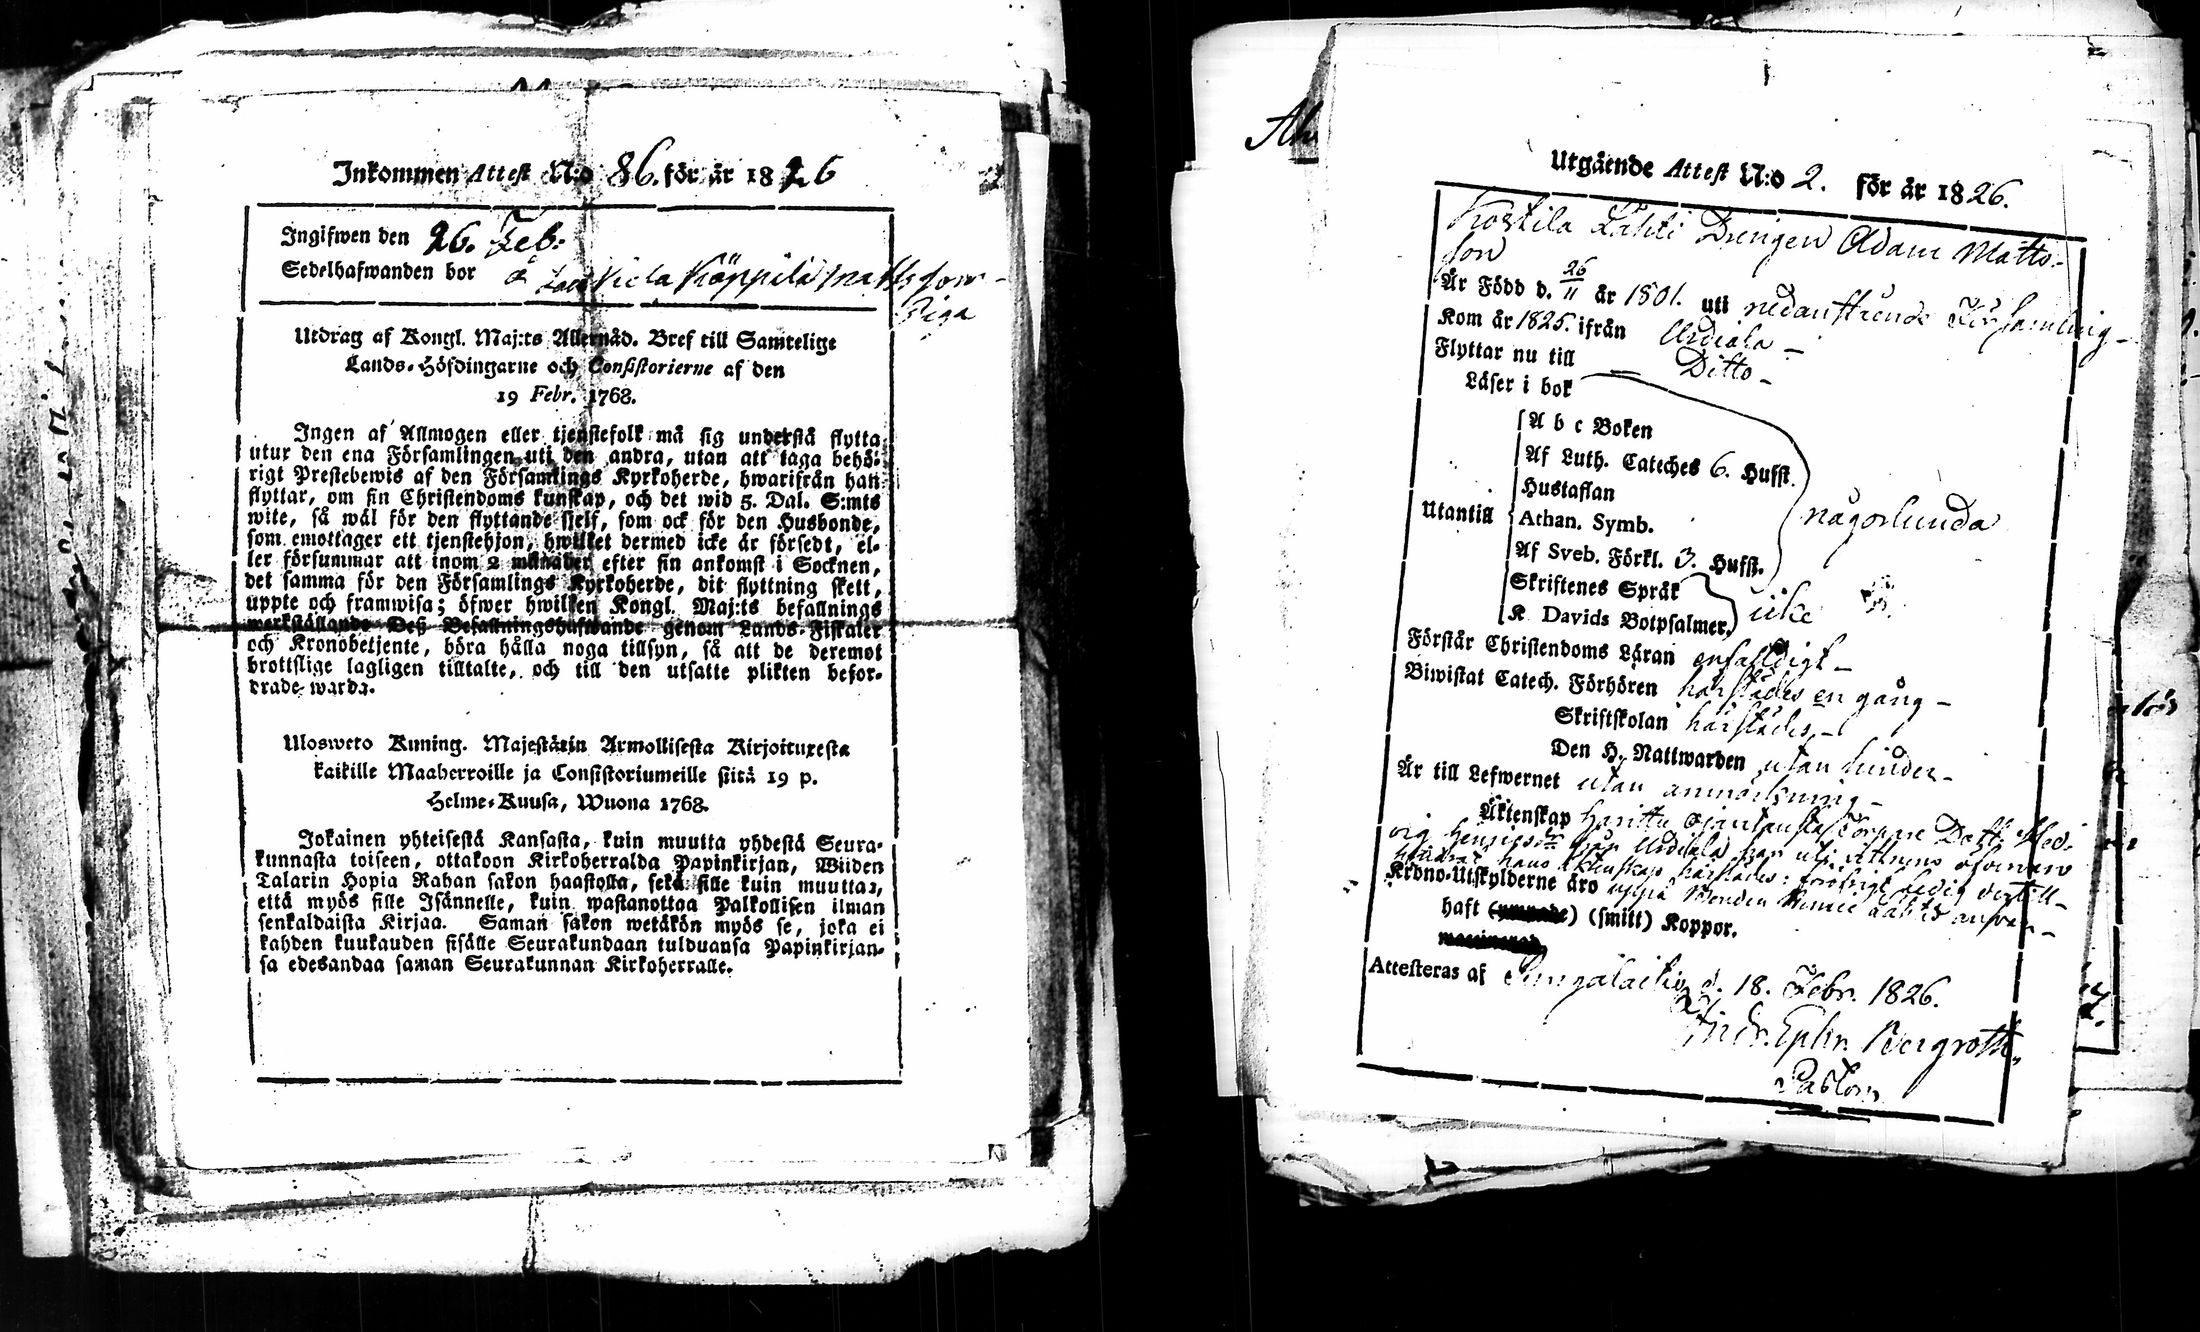 Inkommen Attest N:o 86. för år 1826
Ingifwen den 26. Feb:
Sedelhafwanden bor å Köppilä Matts son
Utdrag af Kongl. Maj:ts Allernåd. Bref till Samtelige
Lands-Höfdingarne och Consistorierne af den
19 Febr. 1768.
Ingen af Allmogen eller tjenstefolk må sig understå flytta
utur den ena Församlingen uti den andra, utan att taga behö-
rigt Prestebewis af den Församlings Kyrkoherde, hwarifrån han
flyttar, om sin Christendoms kunskap, och det wid 5. Dal. S:mts
wite, så wäl för den flyttande sjelf, som ock för den Husbonde,
som emottager ett tjenstehjon, hwilket dermed icke är försedt, el-
ler försummar att inom 2 månader efter sin ankomst i Socknen,
det samma för den Församlings Kyrkoherde, dit flyttning skett,
uppte och framwisa; öfwer hwilken Kongl. Maj:ts befallnings
werkställande Deß Befallningshafwande genom Lands-Fiskaler
och Kronobetjente, böra hålla noga tillsyn, så att de deremot
brottslige lagligen tilltalte, och till den utsatte plikten befor-
drade warda.
Ulosweto Kuning. Majestätin Armollisesta Kirjoituxesta
kaikille Maaherroille ja Consistoriumeille siitä 19 p.
Helme-Kuusa, Wuona 1768.
Jokainen yhteisestä Kansasta, kuin muutta yhdestä Seura-
kunnasta toiseen, ottakoon Kirkoherralda Papinkirjan, Wiiden
Talarin Hopia Rahan sakon haastolla, sekä sille kuin muuttaa,
että myös sille Isännelle, kuin wastanottaa Palkollisen ilman
senkaldaista Kirjaa. Saman sakon wetäkön myös se, joka ei
kahden kuukauden sisälle Seurakundaan tulduansa Papinkirjan-
sa edesandaa saman Seurakunnan Kirkoherralle.
Utgående Attest N:o 2. för år 1826.
Kostila Lahti Drengen Adam Matts-
son
Är Född d. 26/11 år 1801. uti nedanstående Församling
Kom år 1825. ifrån Urdiala
Flyttar nu till Ditto
Läser i bok
A b c Boken
Af Luth. Cateches 6. Hufst.
Hustaflan
Utantill Athan. Symb. någorlunda
Af Sveb. Förkl. 3. Hufst.
Skriftenes Språk
K Davids Botpsalmer. icke
Förstår Christendoms Läran enfaldigt
Biwistat Catech. Förhören härstädes en gång
Skriftskolan härstädes
Den H. Nattwarden utan hinder
Är till Lefwernet utan anmärkning
Äktenskap
Krono-Utskylderne äro
haft (smitt) Koppor.
Attesteras af d. 18. Febr. 1826.
Andr. Ephr. Bergroth
Pastor